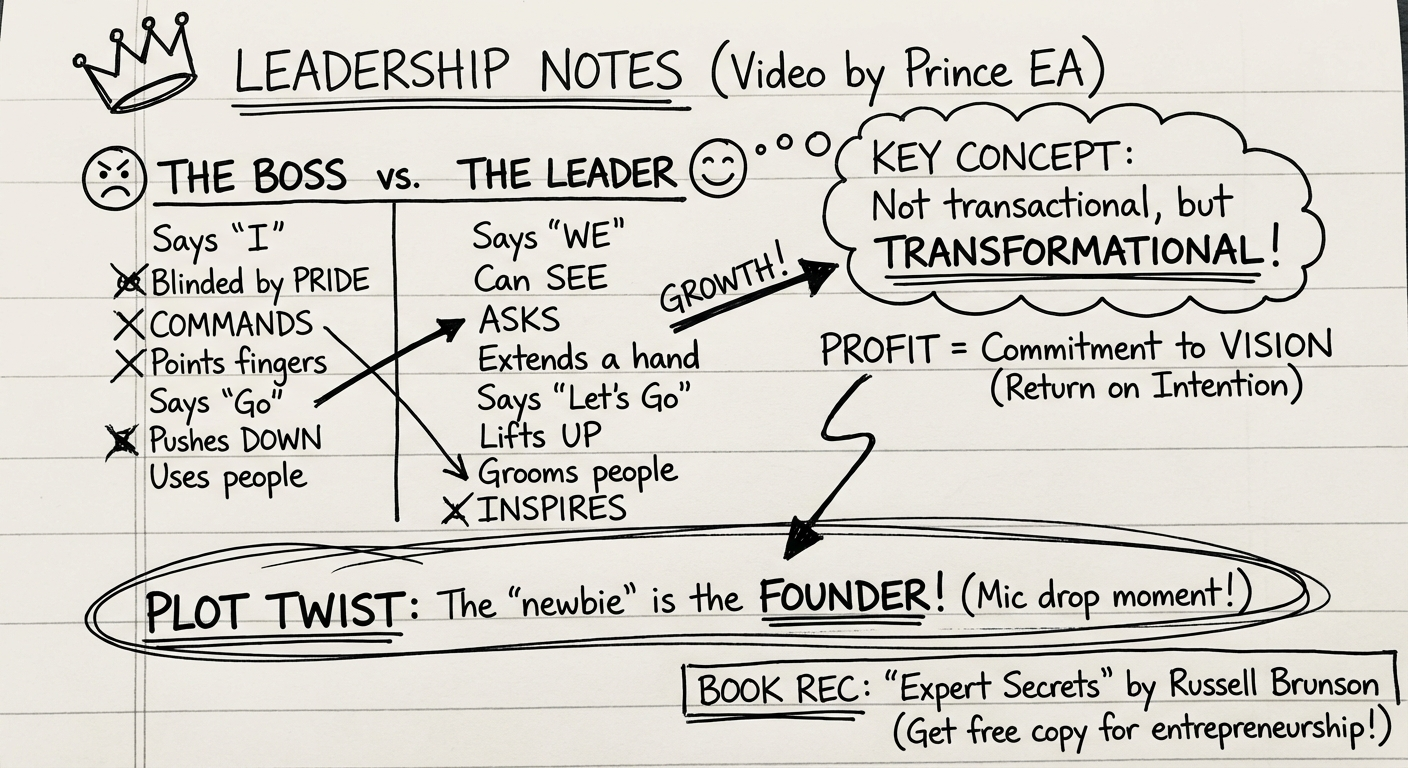 LEADERSHIP NOTES (Video by Prince EA)
THE BOSS vs. THE LEADER
Says "I"
Blinded by PRIDE
COMMANDS
Points fingers
Says "Go"
Pushes DOWN
Uses people
Says "WE"
Can SEE
ASKS
Extends a hand
Says "Let's Go"
Lifts UP
Grooms people
INSPIRES
GROWTH!
KEY CONCEPT:
Not transactional, but
TRANSFORMATIONAL!
PROFIT = Commitment to VISION
(Return on Intention)
PLOT TWIST: The "newbie" is the FOUNDER! (Mic drop moment!)
BOOK REC: "Expert Secrets" by Russell Brunson
(Get free copy for entrepreneurship!)